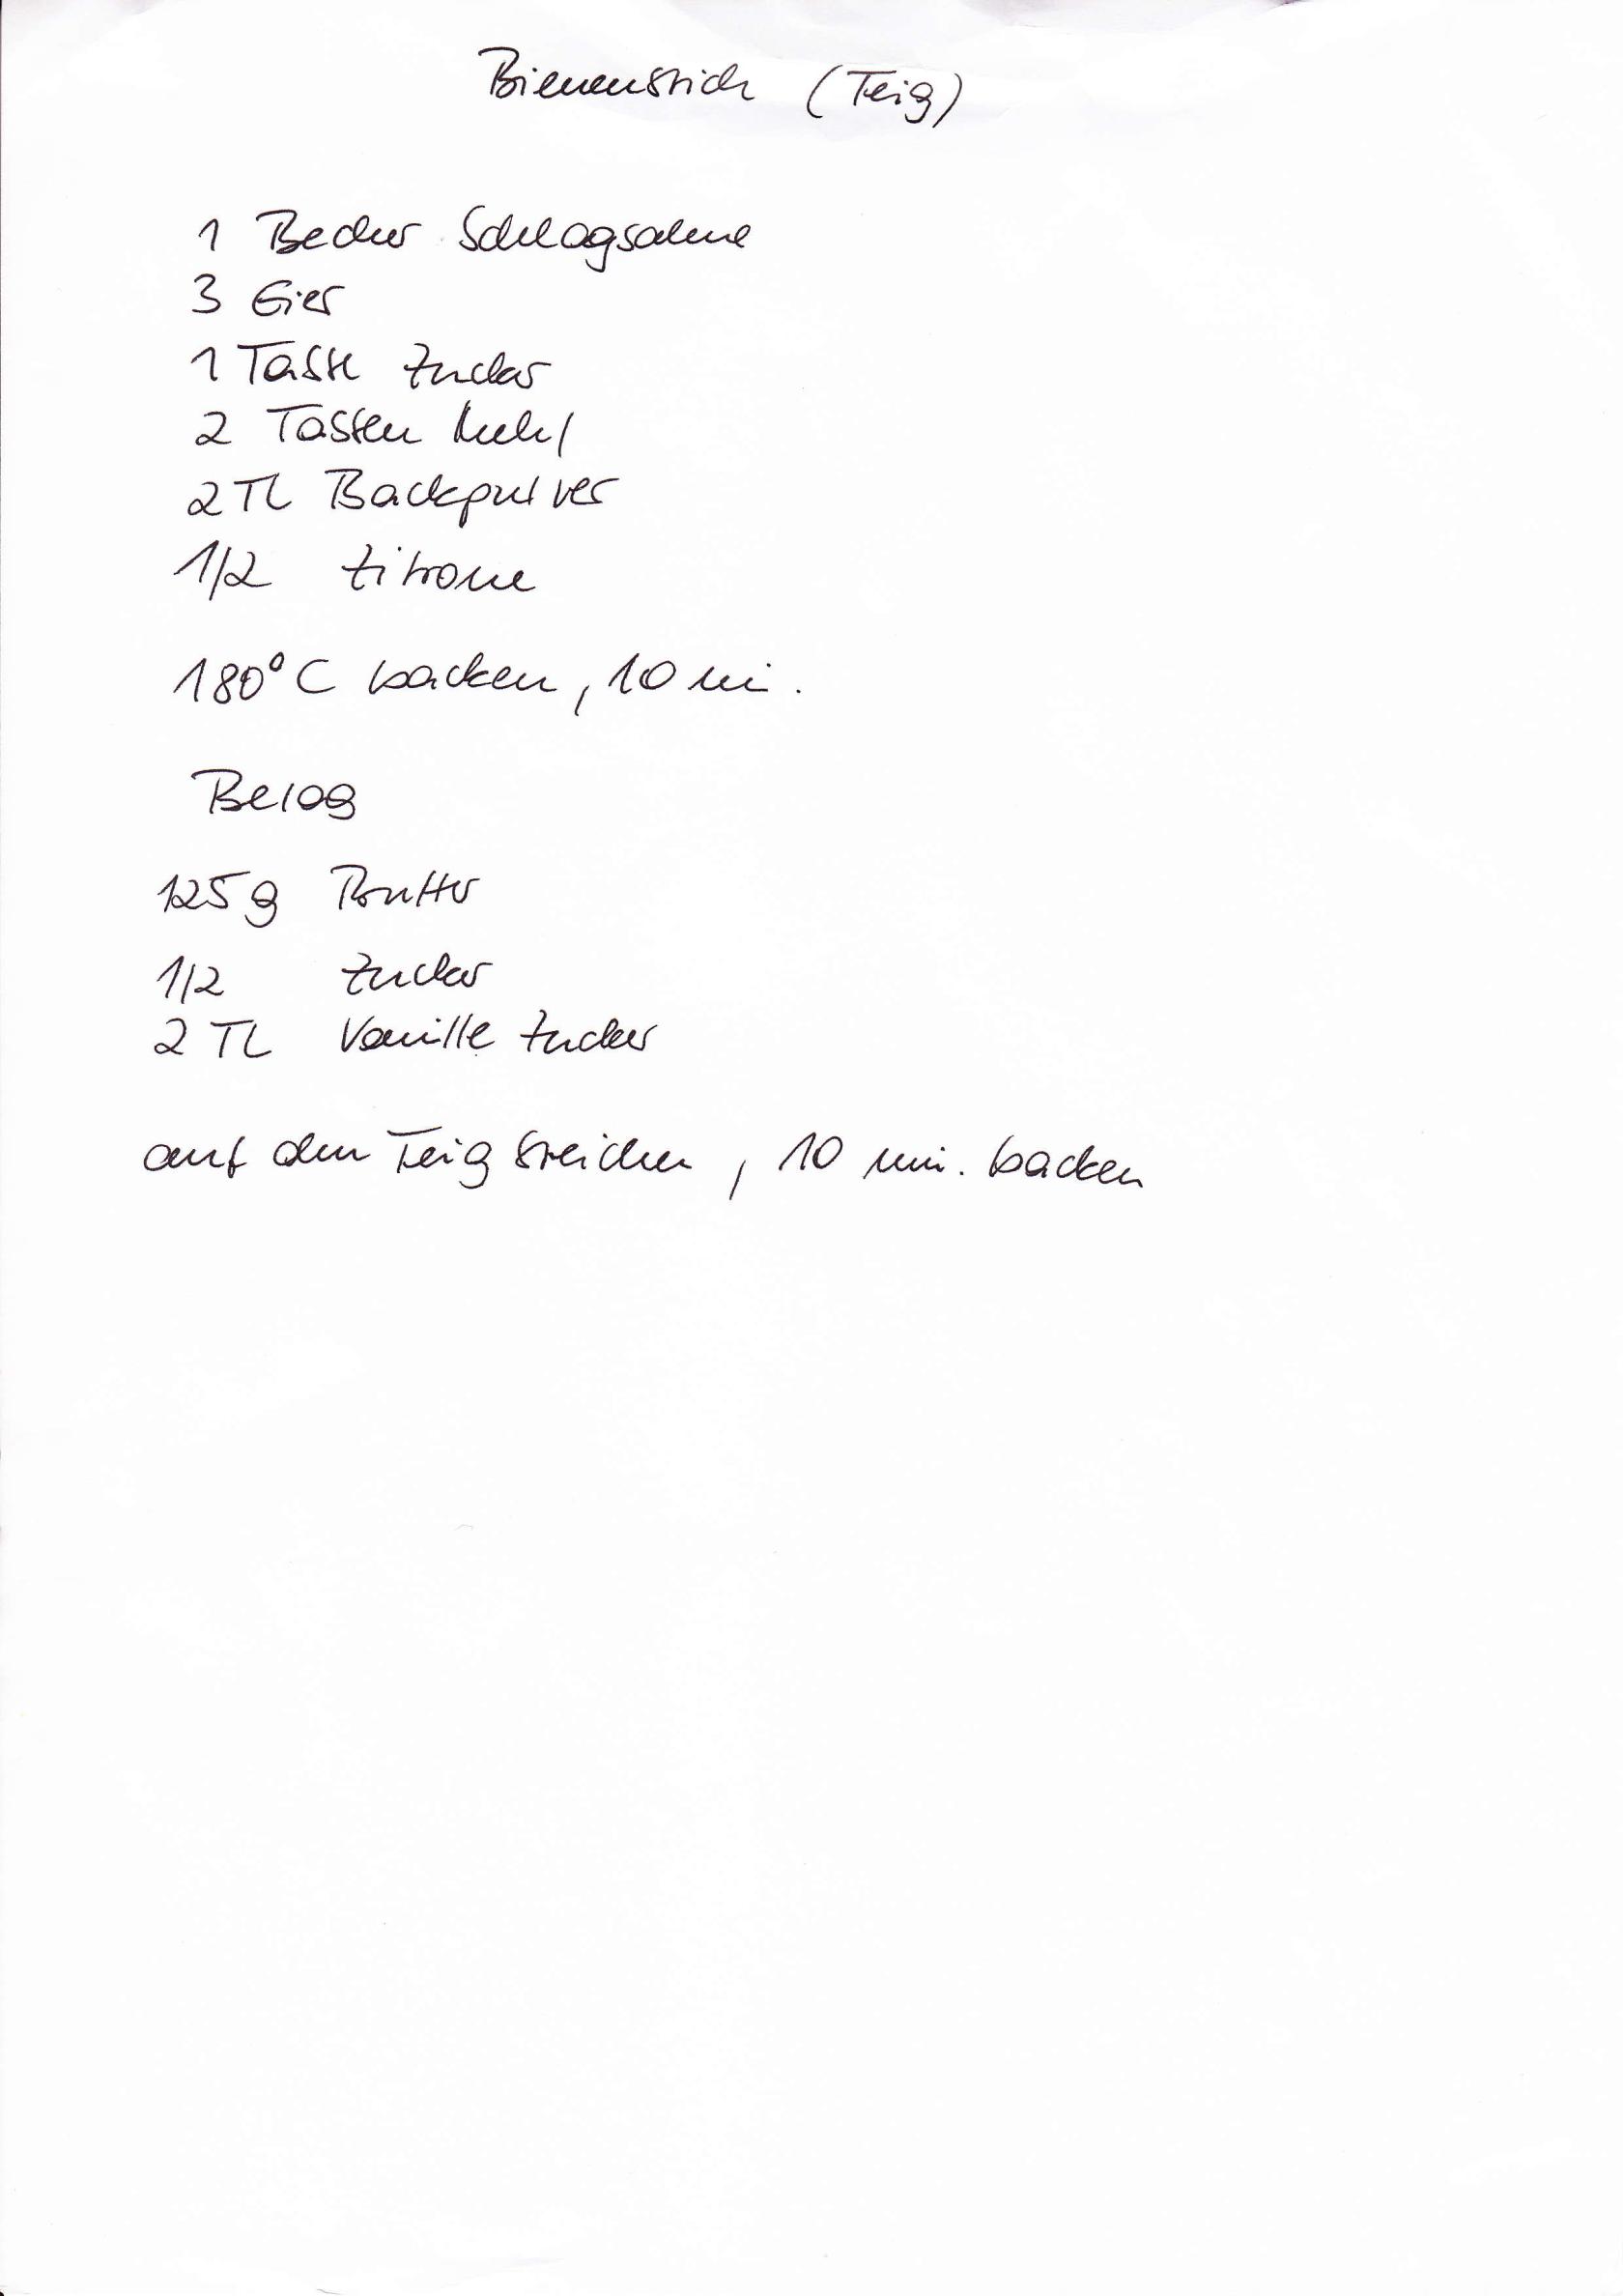 Bienenstich (Teig)
1 Becher Schlagsahne
3 Eier
1 Tasse Zucker
2 Tassen Mehl
2 TL Backpulver
1/2 Zitrone
180° C backen, 10 mi.
Belag
125 g Butter
1/2 Zucker
2 TL Vanille Zucker
auf den Teig streichen, 10 min. backen